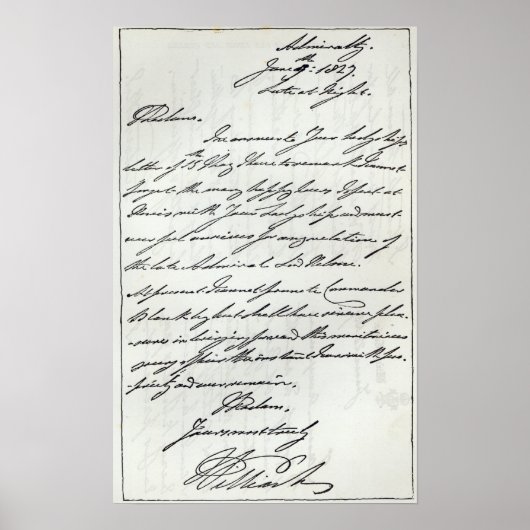 Admiralty.
June 9th: 1827.
Late at Night.
Madam.
In answer to Your Ladyship's
letter of 15th May I have to remark I cannot
forget the many happy hours I spent at
with Your Ladyship and must
ever feel anxious for any relation of
the late Admiral Lord Nelson.
At present I cannot promote Commander
Blankley but shall have sincere plea-
sure in bringing forward this meritorious
young officer the instant I can with pro-
priety and ever remain,
Madam.
Yours most truly
William